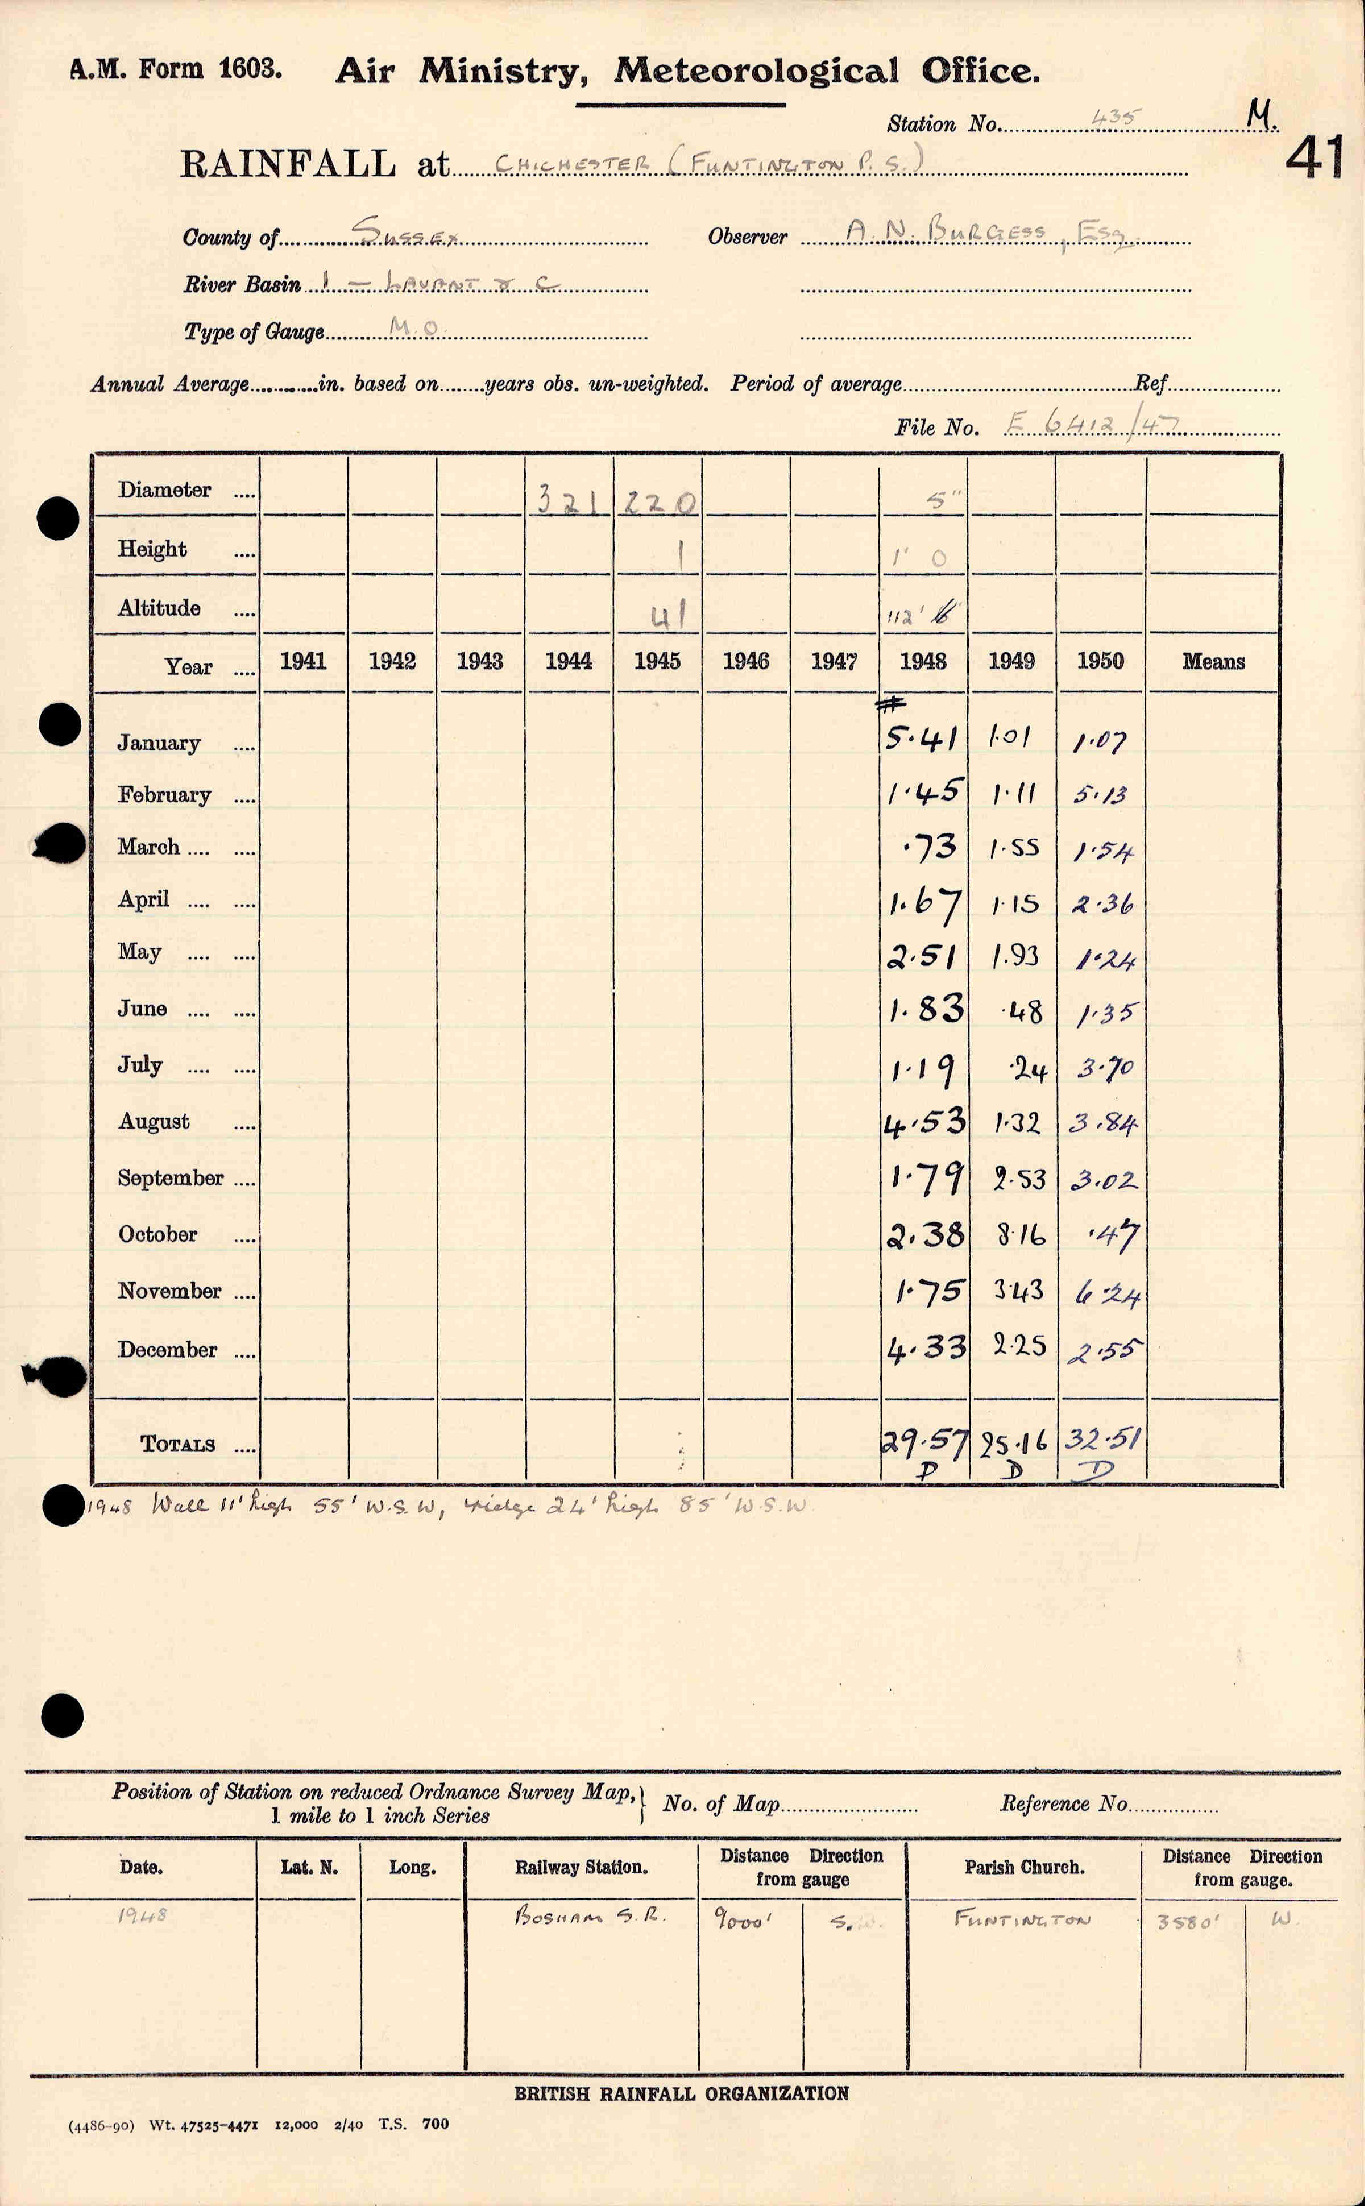 A.M. Form 1603. Air Ministry, Meteorological Office.
Station No. 435 M.
41
RAINFALL at CHICHESTER (FUNTINGTON P.S.)
County of Sussex Observer A. N. BURGESS, Esq
River Basin 1 – LAVANT & C
Type of Gauge M.O.
Annual Average in. based on years obs. un-weighted. Period of average Ref
File No. E 6412/47
Diameter .... 321 220 5"
Height .... 1 1' 0
Altitude .... 41 112'
Year .... 1941 1942 1943 1944 1945 1946 1947 1948 1949 1950 Means
#
January .... 5.41 1.01 1.07
February .... 1.45 1.11 5.13
March .... .... .73 1.55 1.54
April .... .... 1.67 1.15 2.36
May .... .... 2.51 1.93 1.24
June .... .... 1.83 .48 1.35
July .... .... 1.19 .24 3.70
August .... 4.53 1.32 3.84
September .... 1.79 2.53 3.02
October .... 2.38 8.16 .47
November .... 1.75 3.43 6.24
December .... 4.33 2.25 2.55
TOTALS .... 29.57 25.16 32.51
D D D
1948 Wall 11' high 55' W.S.W, ridge 24' high 85' W.S.W.
Position of Station on reduced Ordnance Survey Map, } No. of Map Reference No.
1 mile to 1 inch Series
Date. Lat. N. Long. Railway Station. Distance Direction from gauge Parish Church. Distance Direction from gauge.
1948 BOSHAM S.R. 9000' S. FUNTINGTON 3580' W.
BRITISH RAINFALL ORGANIZATION
(4486-90) Wt. 47525-4471 12,000 2/40 T.S. 700